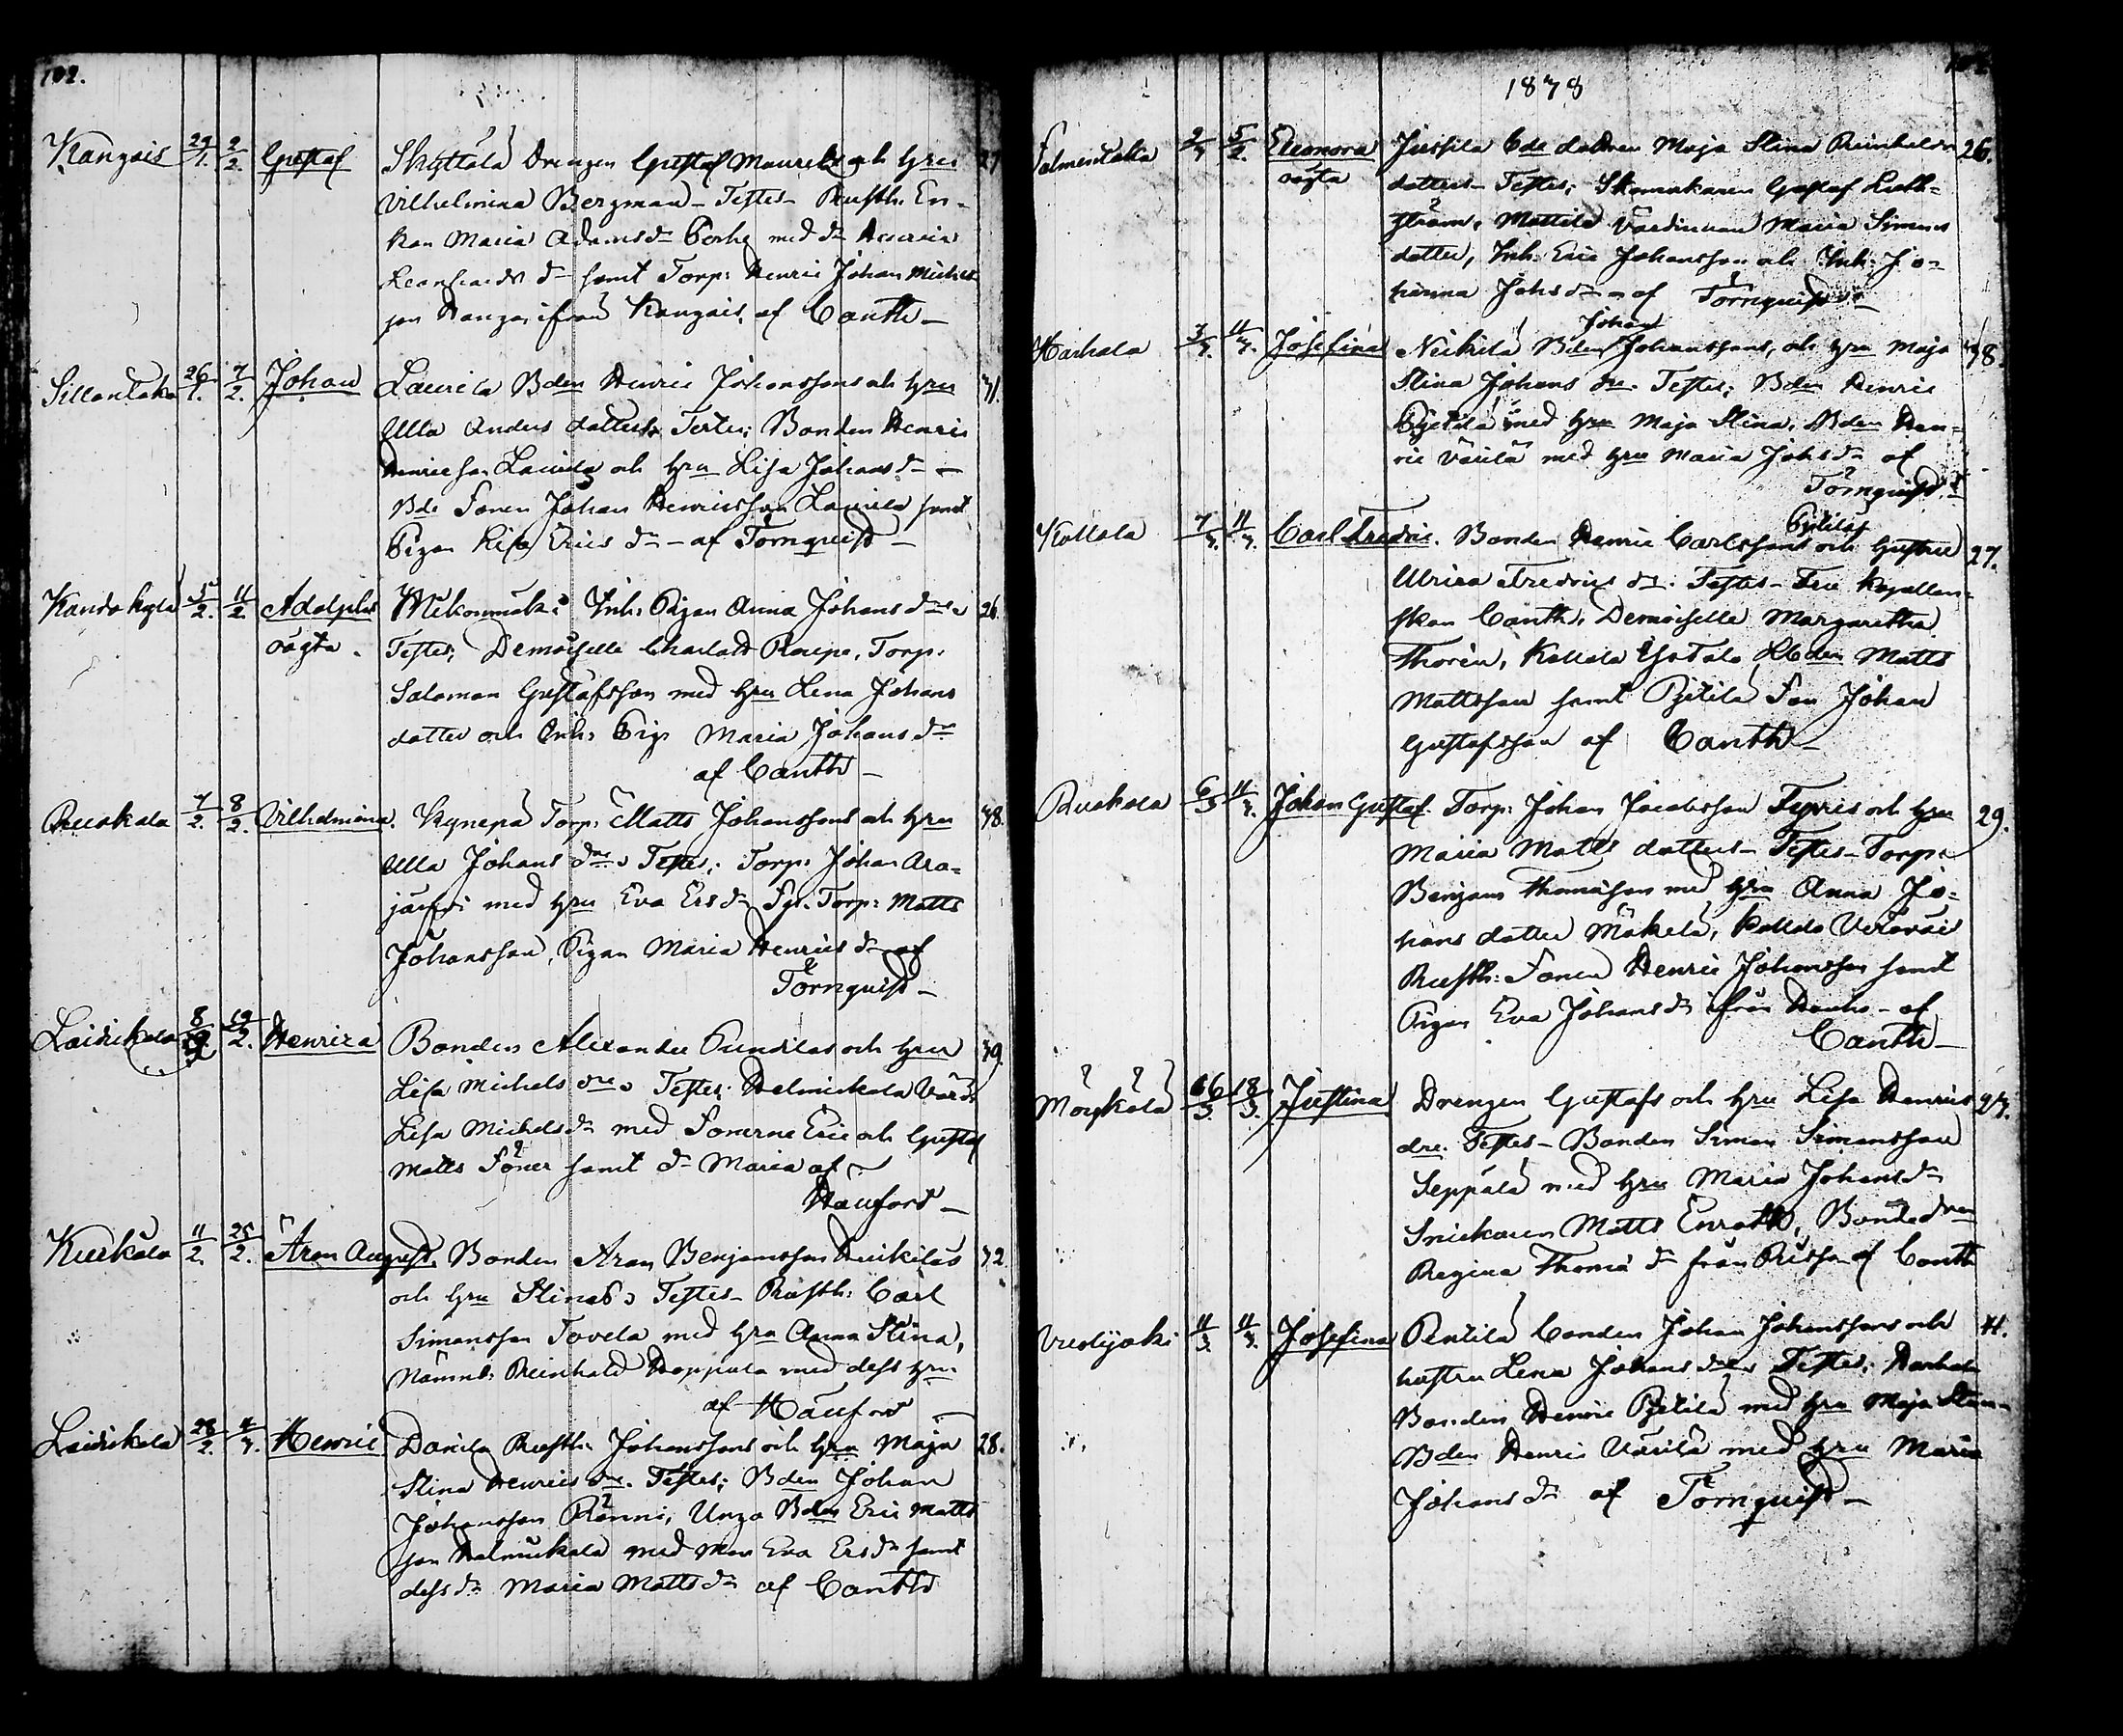 102.
Kangais 29/1. 2/2. Gustaf Skyttälä Drengen Gustaf Maurits och hru 27
Vilhelmina Bergman – Testes – Rusth. En-
kan Maria Adamsdr med dr
samt Torp: Henric Johan Michels
son ifrån Kangais, af Canth –
Sillantaka 26/1. 7/2. Johan Laurila Bden Henric Johanssons och hru 31.
Ulla Anders datters Testes; Bonden Henric
Henricson Laurila och hru Lisa Johans dr –
Bde Sonen Johan Henricsson Laurila samt
Pigan Lisa Erics dr – af Törnquist –
Kandokylä 5/2. 11/2. Adolphus Mikonmäki Inh. Pigan Anna Johans drs 26.
oägta. Testes; Demoiselle Charlotte Roupe, Torp.
Salomon Gustafsson med hru Lena Johans
datter och Inh. Pig. Maria Johans dr
af Canth –
Ruokola 7/2. 8/2. Vilhelmina. Kynepä Torp: Matts Johanssons och hru 38.
Ulla Johans drs Testes; Torp: Johan Ara-
järfvi med hru Eva Ersdr Torp: Matts
Johansson, Pigan Maria Henrics dr af
Törnquist –
Loisikola 8/2 19/2. Henrica Bonden Alexander Puntilas och hru 39.
Lisa Michels drs Testes; Helmickala Värd:
Lisa Michels dr med Sönerne Eric och Gustaf
Matts Söner samt dr Maria af
Hanford –
Kuukola 11/2. 25/2. Aron August. Bonden Aron Benjamsson Heikiläs 32.
och hru Stinas Testes – Rusth: Carl
Simonsson Tovela med hru Anna Stina,
Nämnd. Reinhold Hoppula med dess hru
af Hanford –
Loisikola 28/2. 4/3. Henric Danila Rusth. Johanssons och hru Maja 28.
Stina Henrics drs. Testes; Bden Johan
Johansson Ränni, Unga Bden Eric Matts
son Helmickala med Mor Eva Ersdr samt
dess dr Maria Matts dr af Canth
1878
Salmentaka 5/2. Eleonora Jussila Bde dottren Maja Stina Reinholds 26.
oägta datters – Testes; Skomakaren Gustaf Lind-
ström, Mattila Värdinnan Maria Simons
datter, Inh. Eric Johansson och Inh. Jo-
hanna Johs dr – af Törnquist –
Harhala 3/3. 11/3. Josefina Neikilä Bden Johan Johanssons, och hru Maja 38.
Stina Johans drs. Testes; Bden Henric
Pjetilä med hru Maja Stina, Bden Hen-
ric Värilä med hru Maria Johs dr af
Törnquist
Kollola 7/3. 11/3. Carl Fredric. Bonden Henric Carlssons Pjetiläs och hustru 27.
Ulrica Fredrics drs. Testes – Fru Kapellan-
skan Canth, Demoiselle Margaretha
Thorén, Kollola Ystalo Bden Matts
Mattsson samt Pjetilä Son Johan
Gustafsson af Canth –
Ruokola 6/3 11/3. Johan Gustaf. Torp: Johan Jacobsson Fyris och hru 29.
Maria Matts datters – Testes – Torp:
Benjam Thomasson med hru Anna Jo-
hans datter Mäkelä, Kollola
Rusth: Sonen Henric Johansson samt
Pigan Eva Johans dr ifrån Hauho – af
Canth –
Moyskälä 16/3 18/3. Justina Drengen Gustafs och hru Lisa Henrics 27.
drs. Testes – Bonden Simon Simonsson
Seppälä med hru Maria Johans dr
Snickaren Matts Enroth, Bondedrn
Regina Thomä dr från af Canth
Vuolijoki 11/3. 11/3. Josefina Pentilä Bonden Johan Johanssons och 41.
hustru Lena Johans drs Testes; Harhala
Bonden Henric Pjetilä med hru Maja Stina –
Bden Henric Värilä med hru Maria
Johans dr af Törnquist –